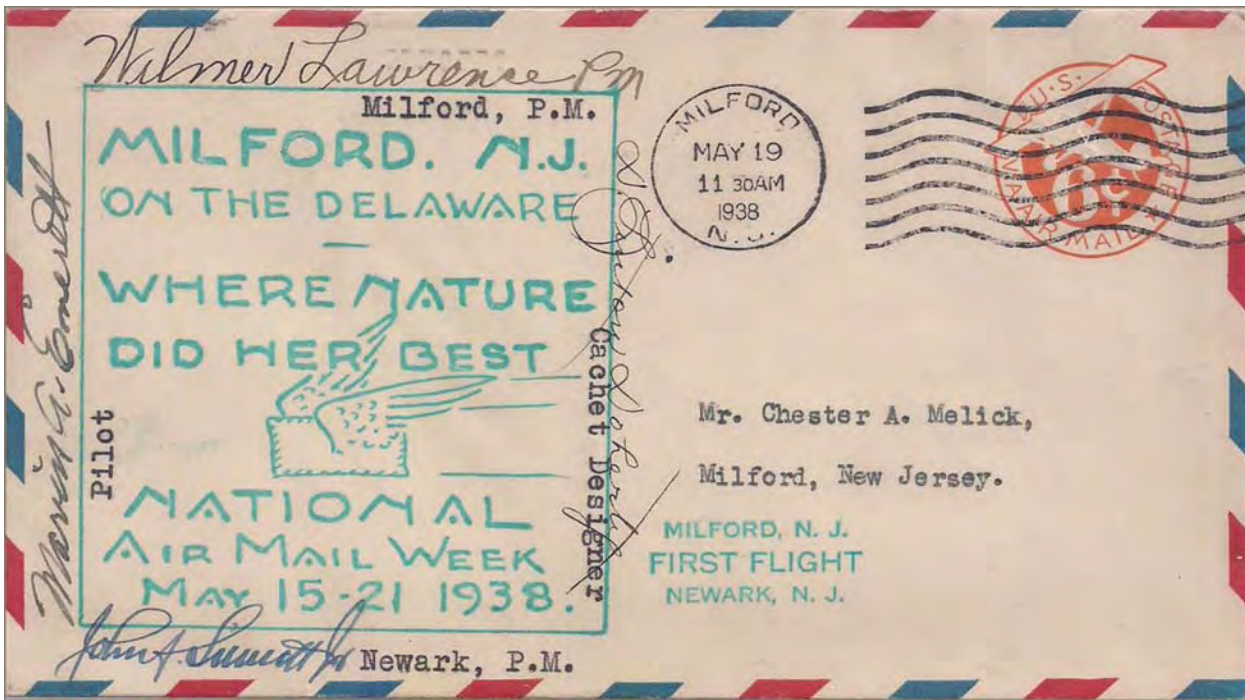 Wilmer Lawrence Pm
Milford, P.M.
MILFORD. N.J.
ON THE DELAWARE
—
WHERE NATURE
DID HER BEST
NATIONAL
AIR MAIL WEEK
MAY 15-21 1938.
Pilot
Cachet Designer
John J.
Newark, P.M.
MILFORD
MAY 19
11 30AM
1938
N. J.
U.S. POSTAGE
6¢
VIA AIR MAIL
Mr. Chester A. Melick,
Milford, New Jersey.
MILFORD, N. J.
FIRST FLIGHT
NEWARK, N. J.